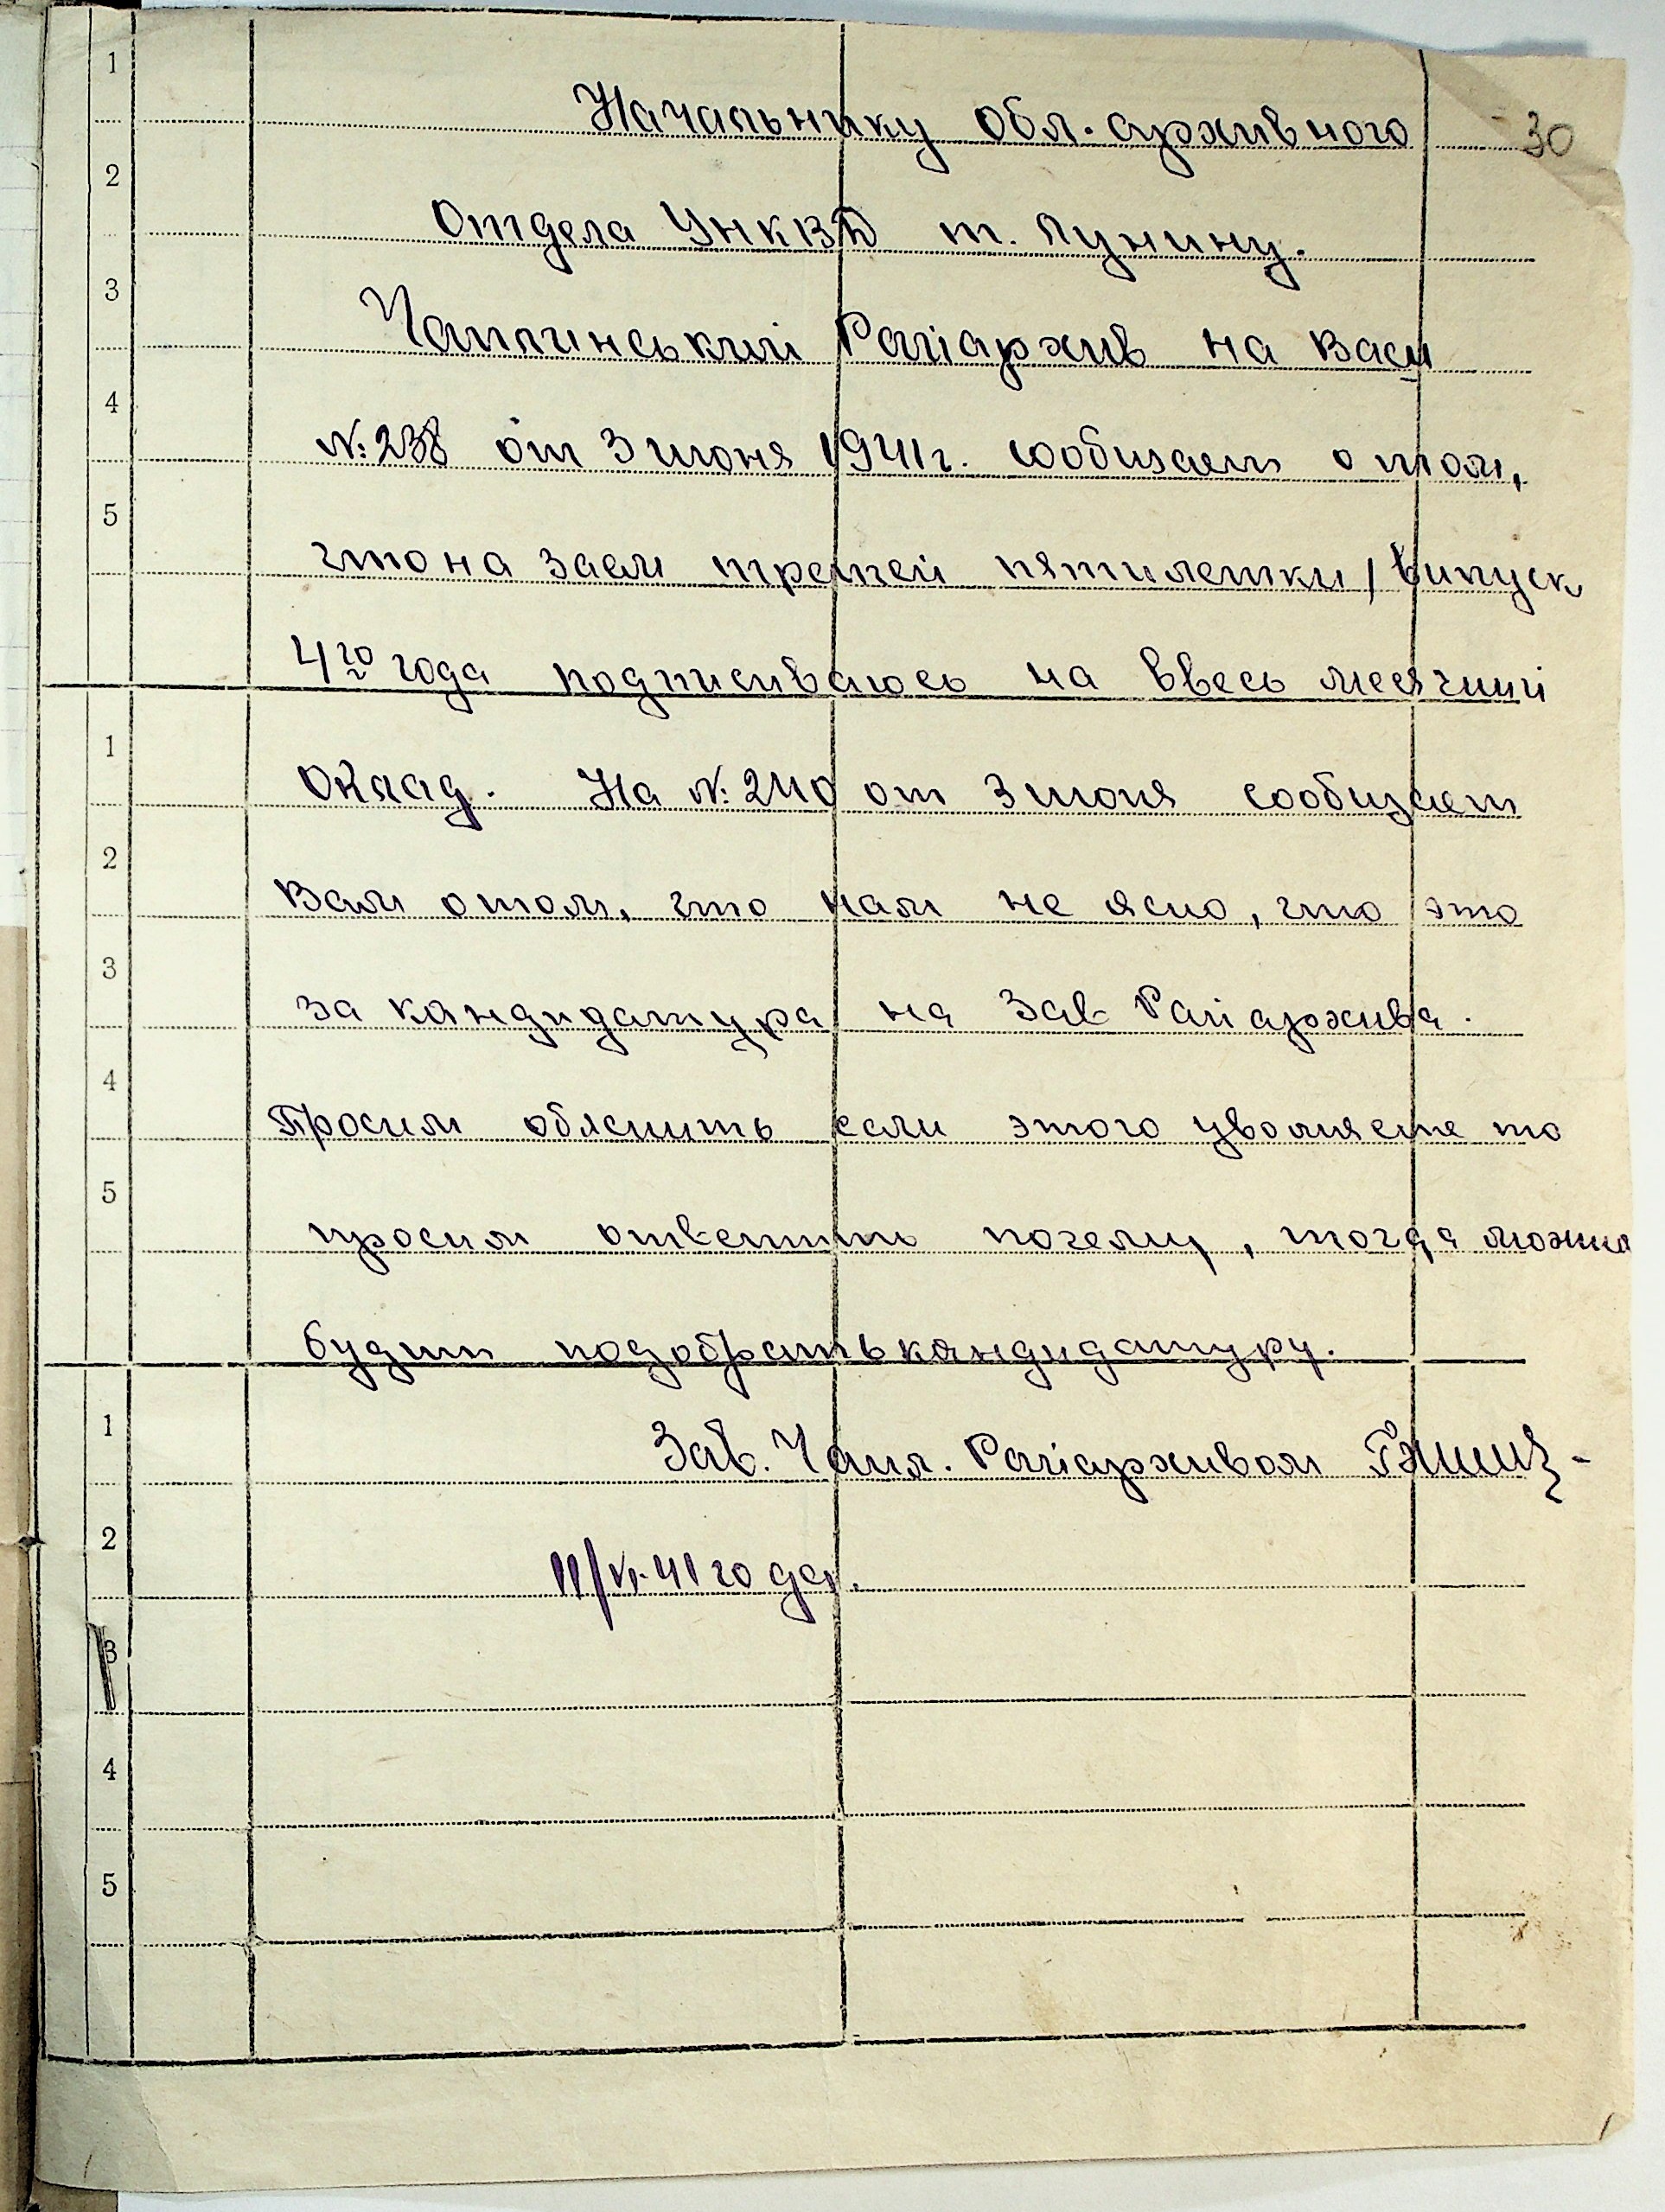 1
Начальнику обл. архивного
30
2
Отдела УНКВД т. Лунину.
3
Чаплинський Райархив на Ваш
4
№ 238 от 3 июня 1941 г. сообщает о том,
5
что на заем третей пятилетки / випуск
4го года подписиваюсь на ввесь месячний
1
Оклад. На № 240 от 3 июня сообщает
2
Вам о том, что нам не ясно, что это
3
за кандидатура на Зав Райархива.
4
Просим обяснить если этого уволняете то
5
просим ответить почему, тогда можно
будит подобрать кандидатуру.
1
Зав. Чапл. Райархивом
2
11/VI-41 года.
3
4
5